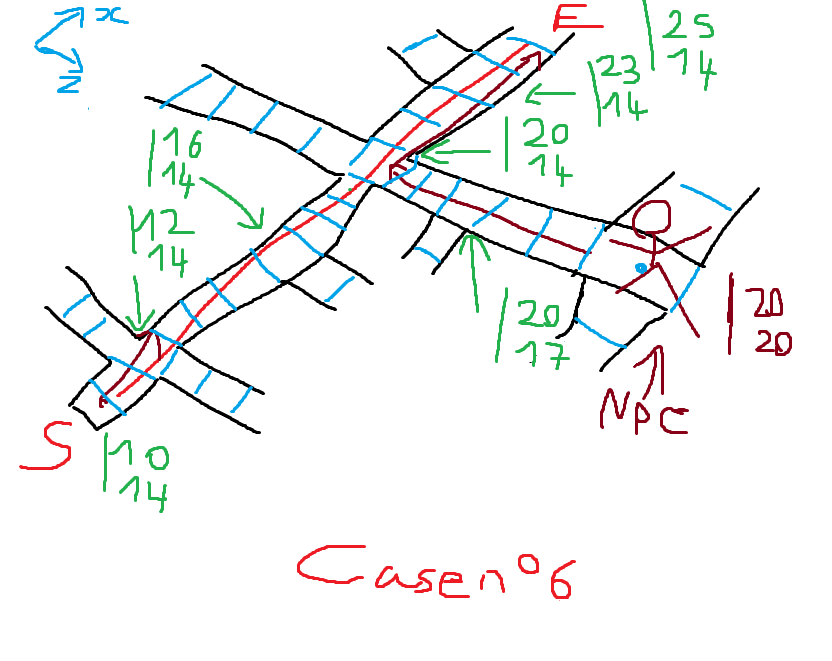 x
z
E
25
14
23
14
20
14
16
14
12
14
20
17
20
20
NPC
S
10
14
Case n°6